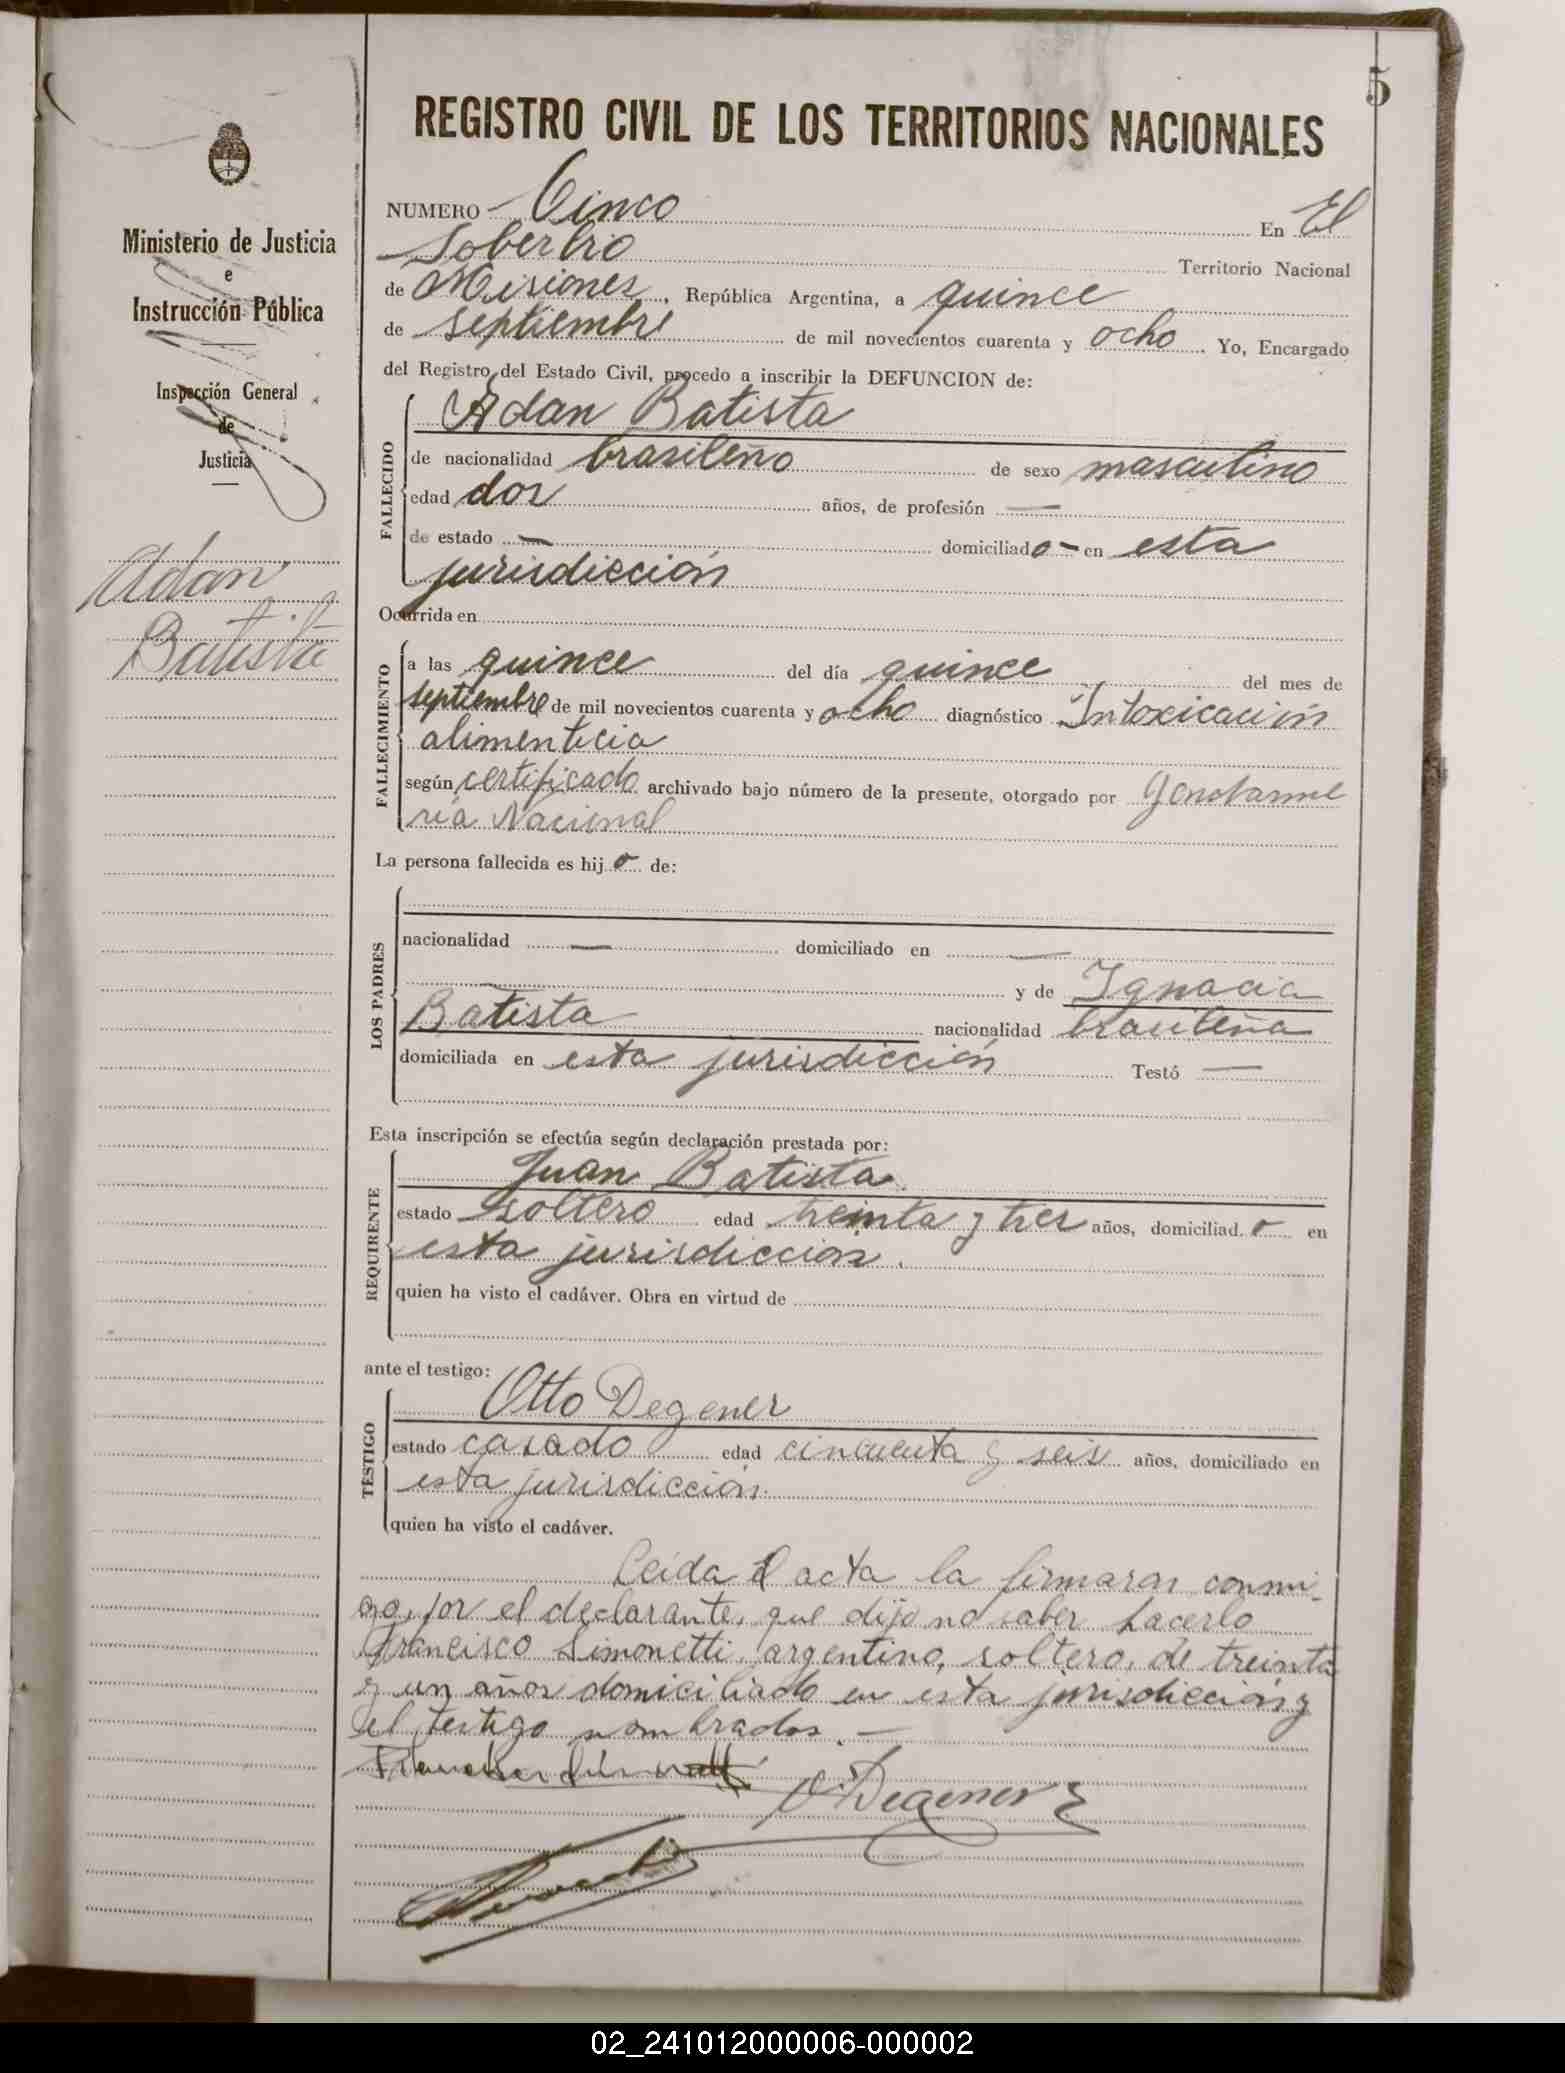 5
REGISTRO CIVIL DE LOS TERRITORIOS NACIONALES
Ministerio de Justicia
e
Instrucción Pública
Inspección General
de
Justicia
Adan
Batista
NUMERO Cinco En El
Soberbio Territorio Nacional
de Misiones, República Argentina, a quince
de septiembre de mil novecientos cuarenta y ocho. Yo, Encargado
del Registro del Estado Civil, procedo a inscribir la DEFUNCION de:
FALLECIDO
Adan Batista
de nacionalidad brasileño de sexo masculino
edad dos años, de profesión —
de estado — domiciliado - en esta
jurisdicción
Ocurrida en
FALLECIMIENTO
a las quince del día quince del mes de
septiembre de mil novecientos cuarenta y ocho diagnóstico Intoxicación
alimenticia
según certificado archivado bajo número de la presente, otorgado por Gendarme
ría Nacional
La persona fallecida es hijo de:
LOS PADRES
nacionalidad — domiciliado en —
y de Ignacia
Batista nacionalidad brasileña
domiciliada en esta jurisdicción Testó —
Esta inscripción se efectúa según declaración prestada por:
REQUIRENTE
Juan Batista
estado soltero edad treinta y tres años, domiciliad.o en
esta jurisdicción.
quien ha visto el cadáver. Obra en virtud de
ante el testigo:
TESTIGO
Otto Degener
estado casado edad cincuenta y seis años, domiciliado en
esta jurisdicción.
quien ha visto el cadáver.
Leída el acta la firmaron conmi-
go, por el declarante, que dijo no saber hacerlo
Francisco Simonetti, argentino, soltero, de treinta
y un años domiciliado en esta jurisdicción y
el testigo nombrados. —
O. Degener
02_241012000006-000002